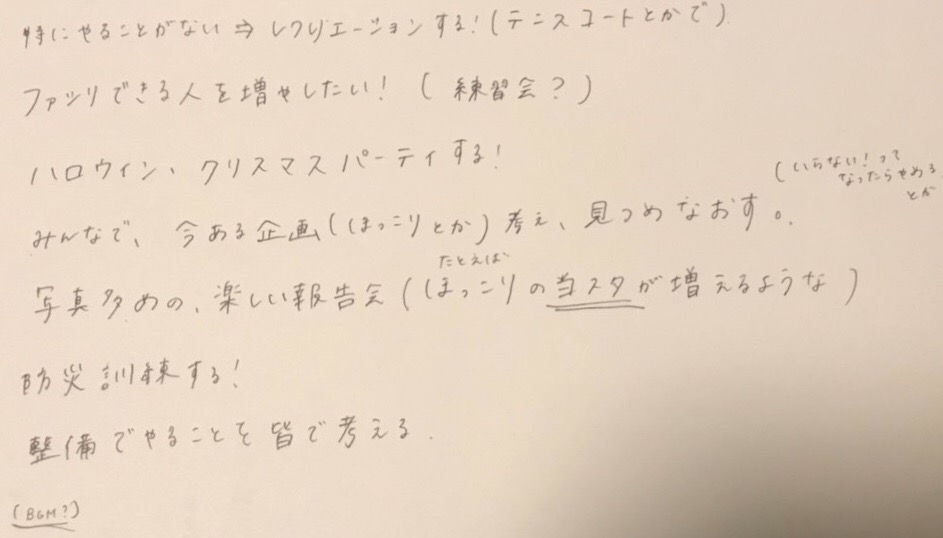 特にやることがない⇒レクリエーションする!(テニスコートとかで)
ファシリできる人を増やしたい!(練習会?)
ハロウィン、クリスマスパーティする!
(いらない!って
なったらやめる
とか
みんなで、今ある企画(ほっこりとか)考え、見つめなおす。
たとえば
写真多めの、楽しい報告会(ほっこりの当スタが増えるような)
防災訓練する!
整備でやることを皆で考える.
(BGM?)